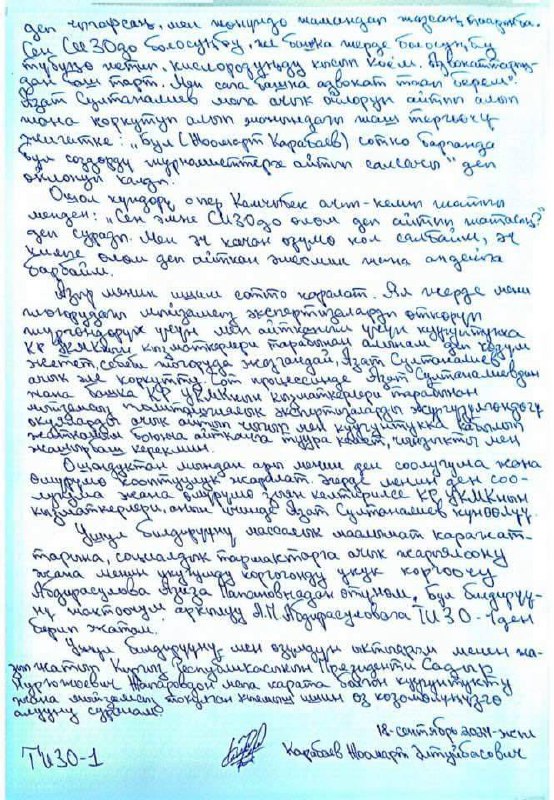 деп чыгарсаң, мен жөнүндө жамандап жазсаң
Сен СИЗОдо болосуңбу, же башка жерде болосуңбу
түбүңө жетип, кислородуңду кысып коём. Адвокаттарың-
дан баш тарт. Мен сага башка адвокат таап берем".
Азат Султаналиев мага ачык ойлорун айтып алып
жана коркутуп алып жанындагы жаш тергөөчү
жигитке: "Бул (Жоомарт Карабаев) сотко барганда
бул сөздөрдү журналисттерге айтып салсачы" деп
ойлонуп калды.
Ошол күндөрү опер Камчыбек
менден: "Сен эмне СИЗОдо өлөм деп айтып жатасың?"
деп сурады. Мен эч качан өзүмө кол салбайм, эч
кимге өлөм деп айткан эмесмин жана андайга
барбаймын.
Азыр менин ишим сотто каралат. Ал жерде мени
жогорудагы мыйзамсыз экспертизаларды өткөрүп
үчүн мен айтканым үчүн куугунтукка
КР УКМКнын кызматкерлери тарабынан алынам деп көзүм
жетет, себеби жогоруда жазгандай, Азат Султаналиев
ачык эле коркутту. Сот процессинде Азат Султаналиевдан
жана башка КР УКМКнын кызматкерлери тарабынан
мыйзамсыз политологиялык экспертизаларды жүргүзүлгөндүгү
окуяларды ачык айтып чыгып, мен куугунтукка кабылып
жатканым боюнча айтканга туура келет, чындыкты мен
жашырбаш керекмин.
Ошондуктан мындан ары менин ден соолугума жана
өмүрүмө коопчулук жаралат. Эгерде менин ден соо-
лугума жана өмүрүмө зыян келтирилсе КР УКМКнын
кызматкерлери, анын ичинде Азат Султаналиев күнөөлүү.
Ушул билдирүүнү массалык маалымат каражат-
тарына, социалдык тармактарга ачык жарыялоону
жана менин укугумду коргоодо укук коргоочу
Абдирасулова Азиза Папановнадан өтүнөм. Бул билдирүү-
нү жактоочум аркылуу А.П. Абдирасуловага ТИЗО-1ден
берип жатам.
Ушул билдирүүнү мен өзүмдүн ыктыярым менен жа-
зып жатып Кыргыз Республикасынын Президенти Садыр
Нургожоевич Жапаровдон мага карата болгон куугунтукту
жана мыйзамсыз токулган ишин өз көзөмөлүңүзгө
алууну суранам.
18-сентябрь 2024-жыл
ТИЗО-1
Карабаев Жоомарт Элтуйбасович